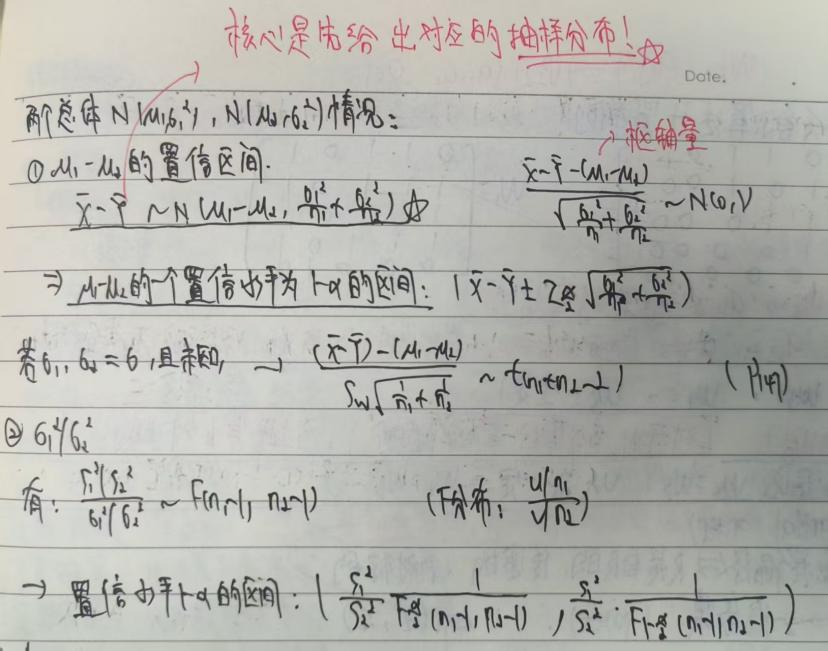 核心是先给出对应的抽样分布!☆
Date.
两个总体 N(μ₁,σ₁²), N(μ₂,σ₂²)情况:
→ 枢轴量
① μ₁-μ₂的置信区间.
X̄-Ȳ ~ N(μ₁-μ₂, σ₁²/n₁+σ₂²/n₂)☆ (X̄-Ȳ-(μ₁-μ₂))/√(σ₁²/n₁+σ₂²/n₂) ~ N(0,1)
⇒ μ₁-μ₂的一个置信水平为1-α的区间: (X̄-Ȳ±Z_{α/2}√(σ₁²/n₁+σ₂²/n₂))
若σ₁, σ₂=σ, 且未知, → ((X̄-Ȳ)-(μ₁-μ₂))/(S_w√(1/n₁+1/n₂)) ~ t(n₁+n₂-2)
② σ₁²/σ₂²
有: (S₁²/S₂²)/(σ₁²/σ₂²) ~ F(n₁-1, n₂-1) (F分布: (U/n₁)/(V/n₂))
→ 置信水平1-α的区间: (S₁²/S₂² 1/F_{α/2}(n₁-1,n₂-1), S₁²/S₂² · 1/F_{1-α/2}(n₁-1,n₂-1))